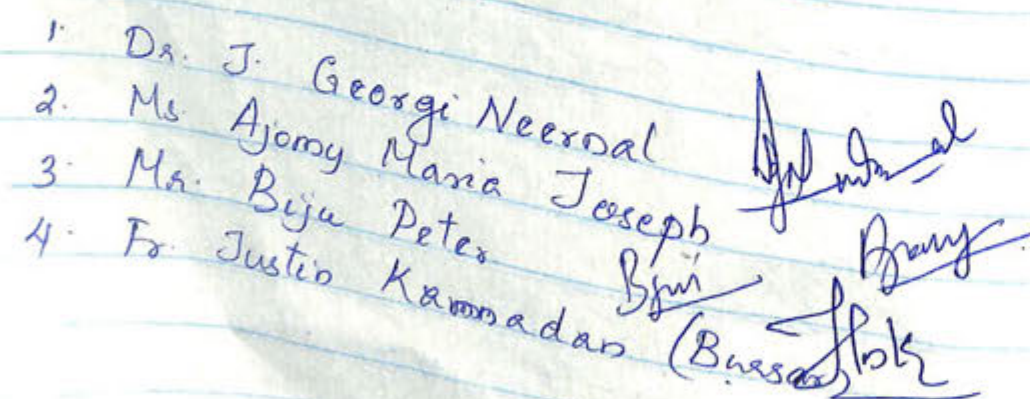 1. Dr. J. Georgi Neernal
2. Ms. Ajomy Maria Joseph
3. Mr. Biju Peter
4. Fr. Justin Kannadan (Bursar)